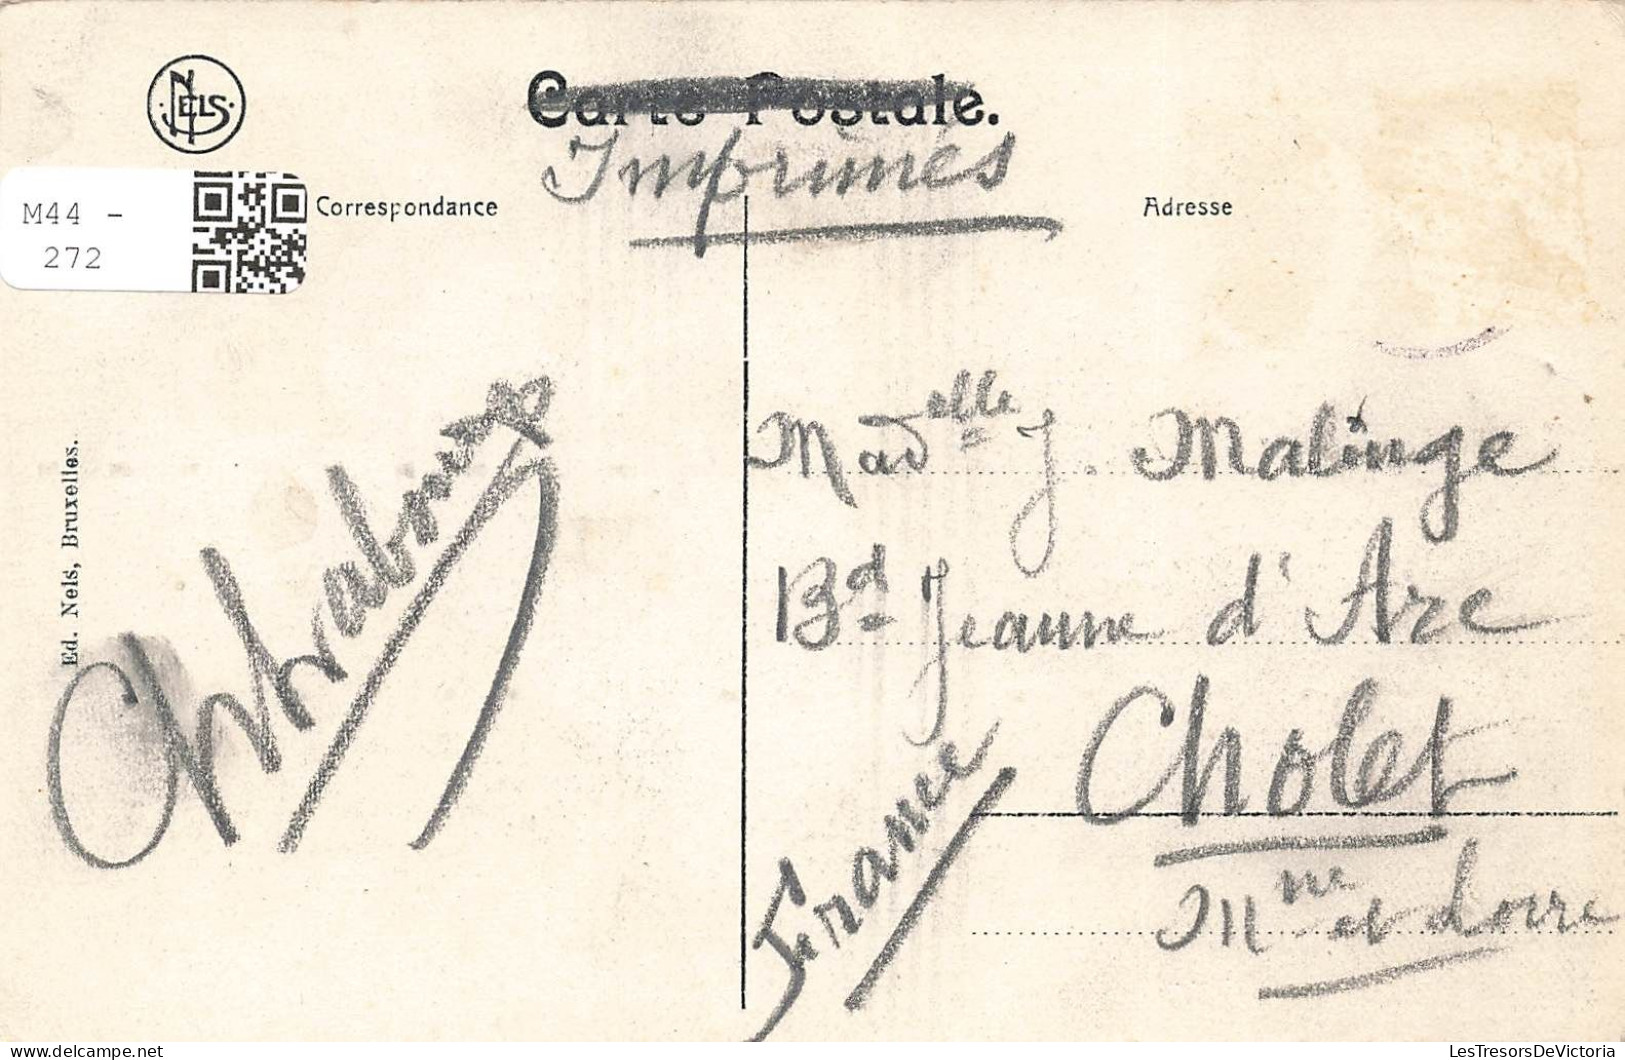 NELS
Carte Postale.
Imprimés
M44 -
272
Correspondance
Adresse
Ed. Nels, Bruxelles.
Mad elle J. Malinge
Bd Jeanne d'Arc
Cholet
Mne et Loire
France
delcampe.net
LesTresorsDeVictoria